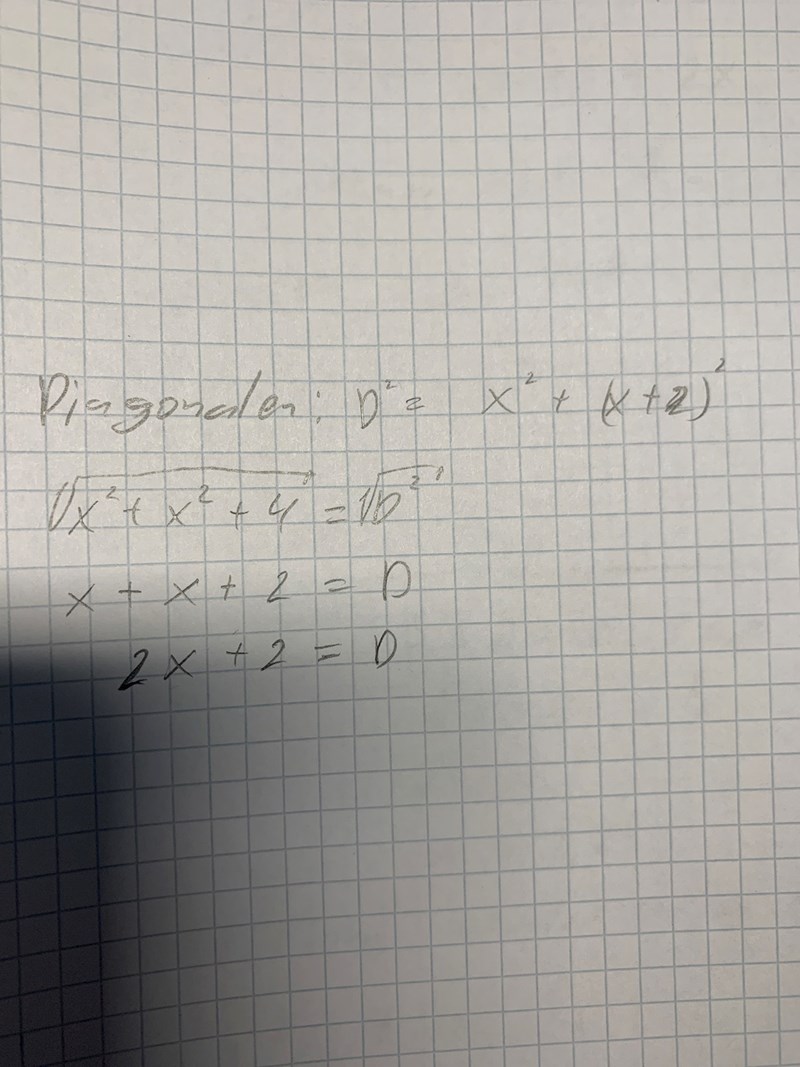 Diagonalen: D² = x² + (x+2)²
√x² + x² + 4 = √D²
x + x + 2 = D
2x + 2 = D